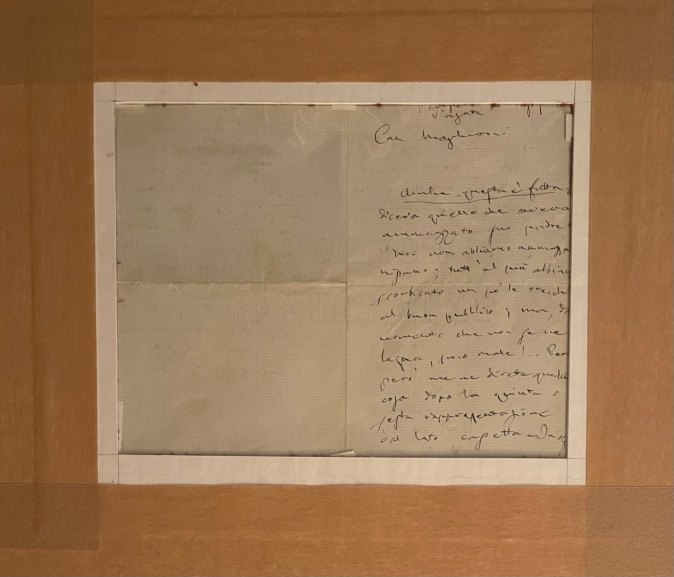 V'agata
Caro Maglioni
Anche questa è fatta:
diceva quello che aveva
ammazzato suo padre
Noi non abbiamo ammazza
nissuno; tutt'al più abbiam
scorticato un po' le orecchie
al buon pubblico; ma, d
momento che non se ne
lagna, poco male!..
però me ne direte qualch
cosa dopo la quinta o
sesta rappresentazione
dal lato